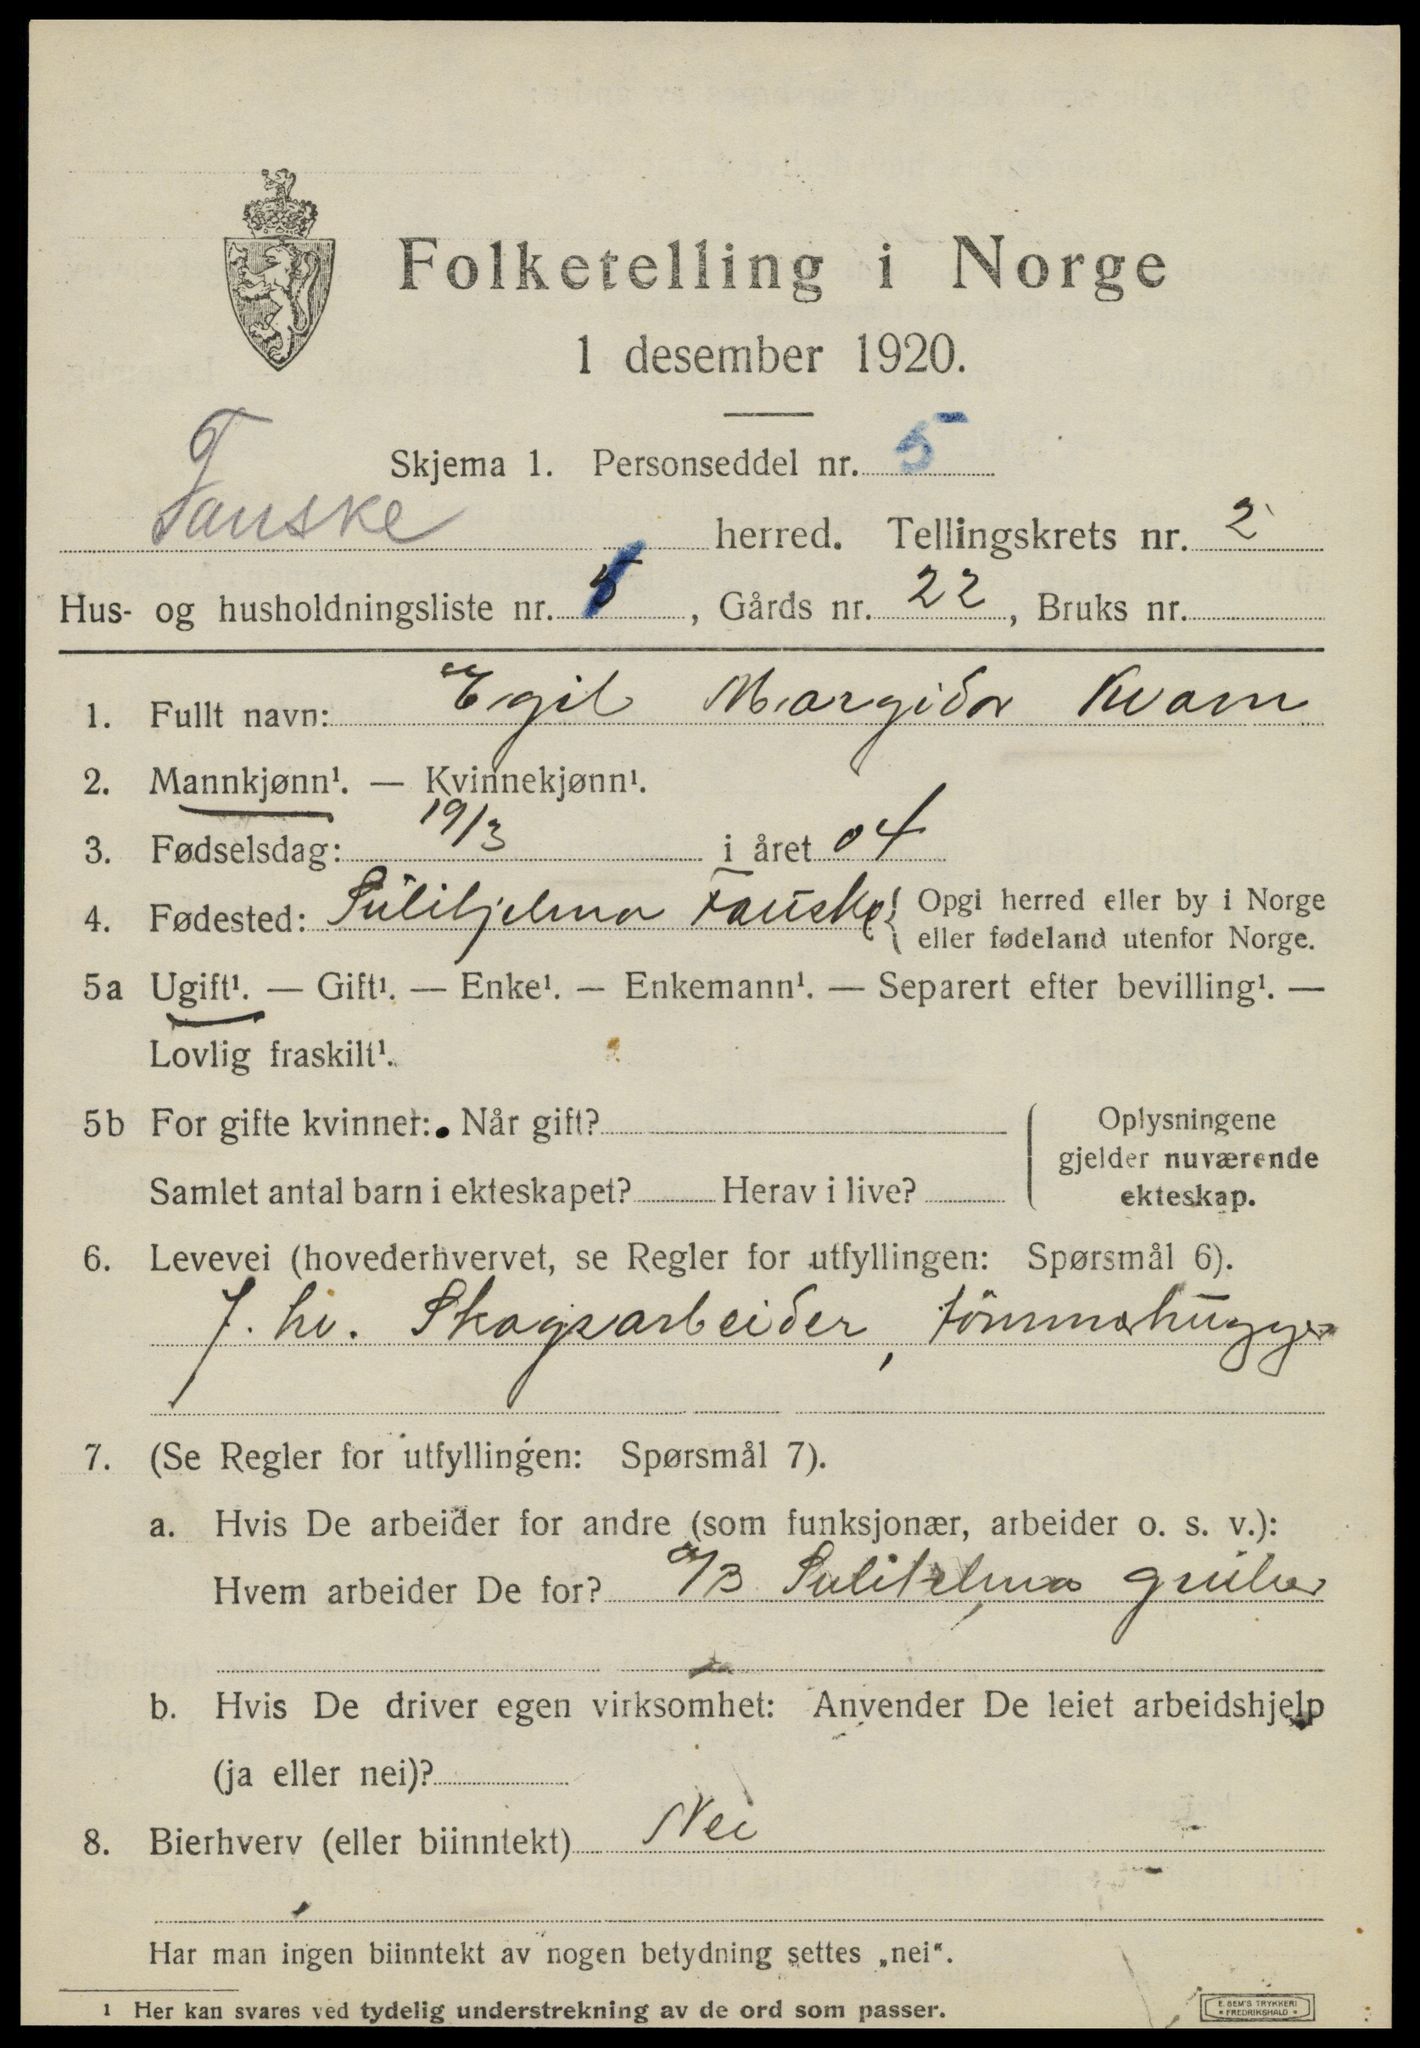 Folketelling i Norge
1 desember 1920.
Skjema 1. Personseddel nr. 5
Fauske herred. Tellingskrets nr. 2
Hus- og husholdningsliste nr. 5, Gårds nr. 22, Bruks nr.
1. Fullt navn: Egil Margido Kvam
2. Mannkjønn¹. — Kvinnekjønn¹.
3. Fødselsdag: 19/3 i året 04
4. Fødested: Sulitjelma Fauske { Opgi herred eller by i Norge
eller fødeland utenfor Norge.
5a Ugift¹. — Gift¹. — Enke¹. — Enkemann¹. — Separert efter bevilling¹. —
Lovlig fraskilt¹.
5b For gifte kvinner: Når gift?
Samlet antal barn i ekteskapet? Herav i live?
Oplysningene
gjelder nuværende
ekteskap.
6. Levevei (hovederhvervet, se Regler for utfyllingen: Spørsmål 6).
Skogsarbeider, tömmerhugger
7. (Se Regler for utfyllingen: Spørsmål 7).
a. Hvis De arbeider for andre (som funksjonær, arbeider o. s. v.):
Hvem arbeider De for? A/B Sulitelma gruber
b. Hvis De driver egen virksomhet: Anvender De leiet arbeidshjelp
(ja eller nei)?
8. Bierhverv (eller biinntekt) Nei
Har man ingen biinntekt av nogen betydning settes „nei“.
1 Her kan svares ved tydelig understrekning av de ord som passer.
E. SEM'S TRYKKERI
FREDRIKSHALD